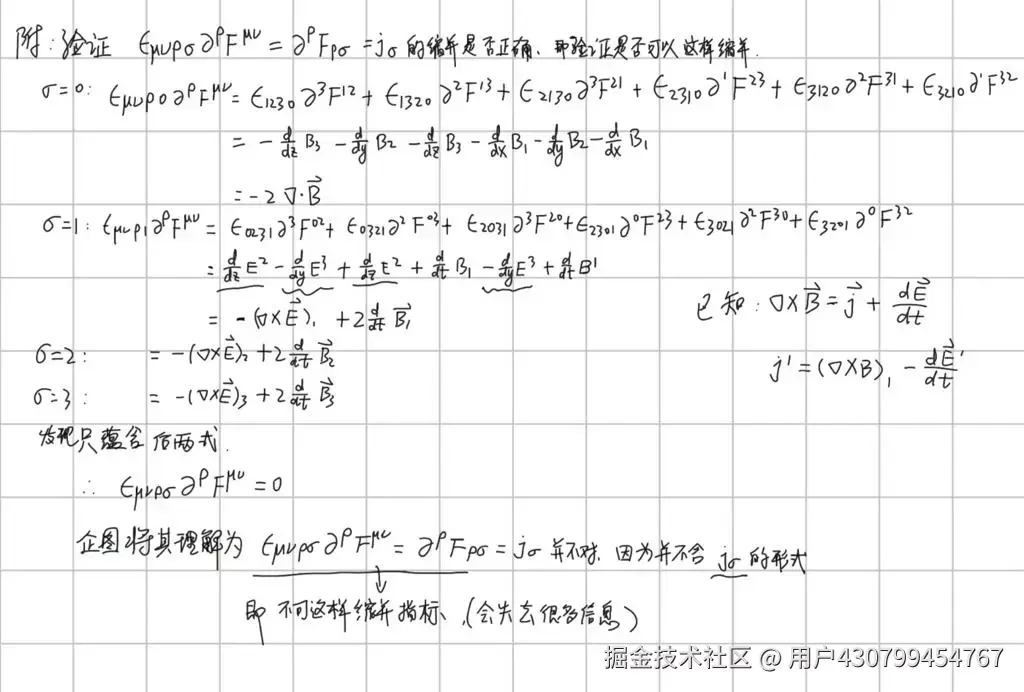 附:验证 ϵμνρσ ∂^ρ F^μν = ∂^ρ Fρσ = jσ 的缩并是否正确、即验证是否可以这样缩并.
σ=0: ϵμνρ0 ∂^ρ F^μν = ϵ1230 ∂^3 F^12 + ϵ1320 ∂^2 F^13 + ϵ2130 ∂^3 F^21 + ϵ2310 ∂^1 F^23 + ϵ3120 ∂^2 F^31 + ϵ3210 ∂^1 F^32
= - d/dz B3 - d/dy B2 - d/dz B3 - d/dx B1 - d/dy B2 - d/dx B1
= -2 ∇·B⃗
σ=1: ϵμνρ1 ∂^ρ F^μν = ϵ0231 ∂^3 F^02 + ϵ0321 ∂^2 F^03 + ϵ2031 ∂^3 F^20 + ϵ2301 ∂^0 F^23 + ϵ3021 ∂^2 F^30 + ϵ3201 ∂^0 F^32
= d/dz E^2 - d/dy E^3 + d/dz E^2 + d/dt B1 - d/dy E^3 + d/dt B^1
= -(∇×E⃗)1 + 2 d/dt B⃗1
已知: ∇×B⃗ = j⃗ + dE⃗/dt
σ=2: = -(∇×E⃗)2 + 2 d/dt B⃗2
j^1 = (∇×B)1 - dE⃗^1/dt
σ=3: = -(∇×E⃗)3 + 2 d/dt B⃗3
发现只蕴含后两式.
∴ ϵμνρσ ∂^ρ F^μν = 0
企图将其理解为 ϵμνρσ ∂^ρ F^μν = ∂^ρ Fρσ = jσ 并不对. 因为并不含 jσ 的形式
↓
即 不可这样缩并指标、(会失去很多信息)
掘金技术社区 @ 用户430799454767